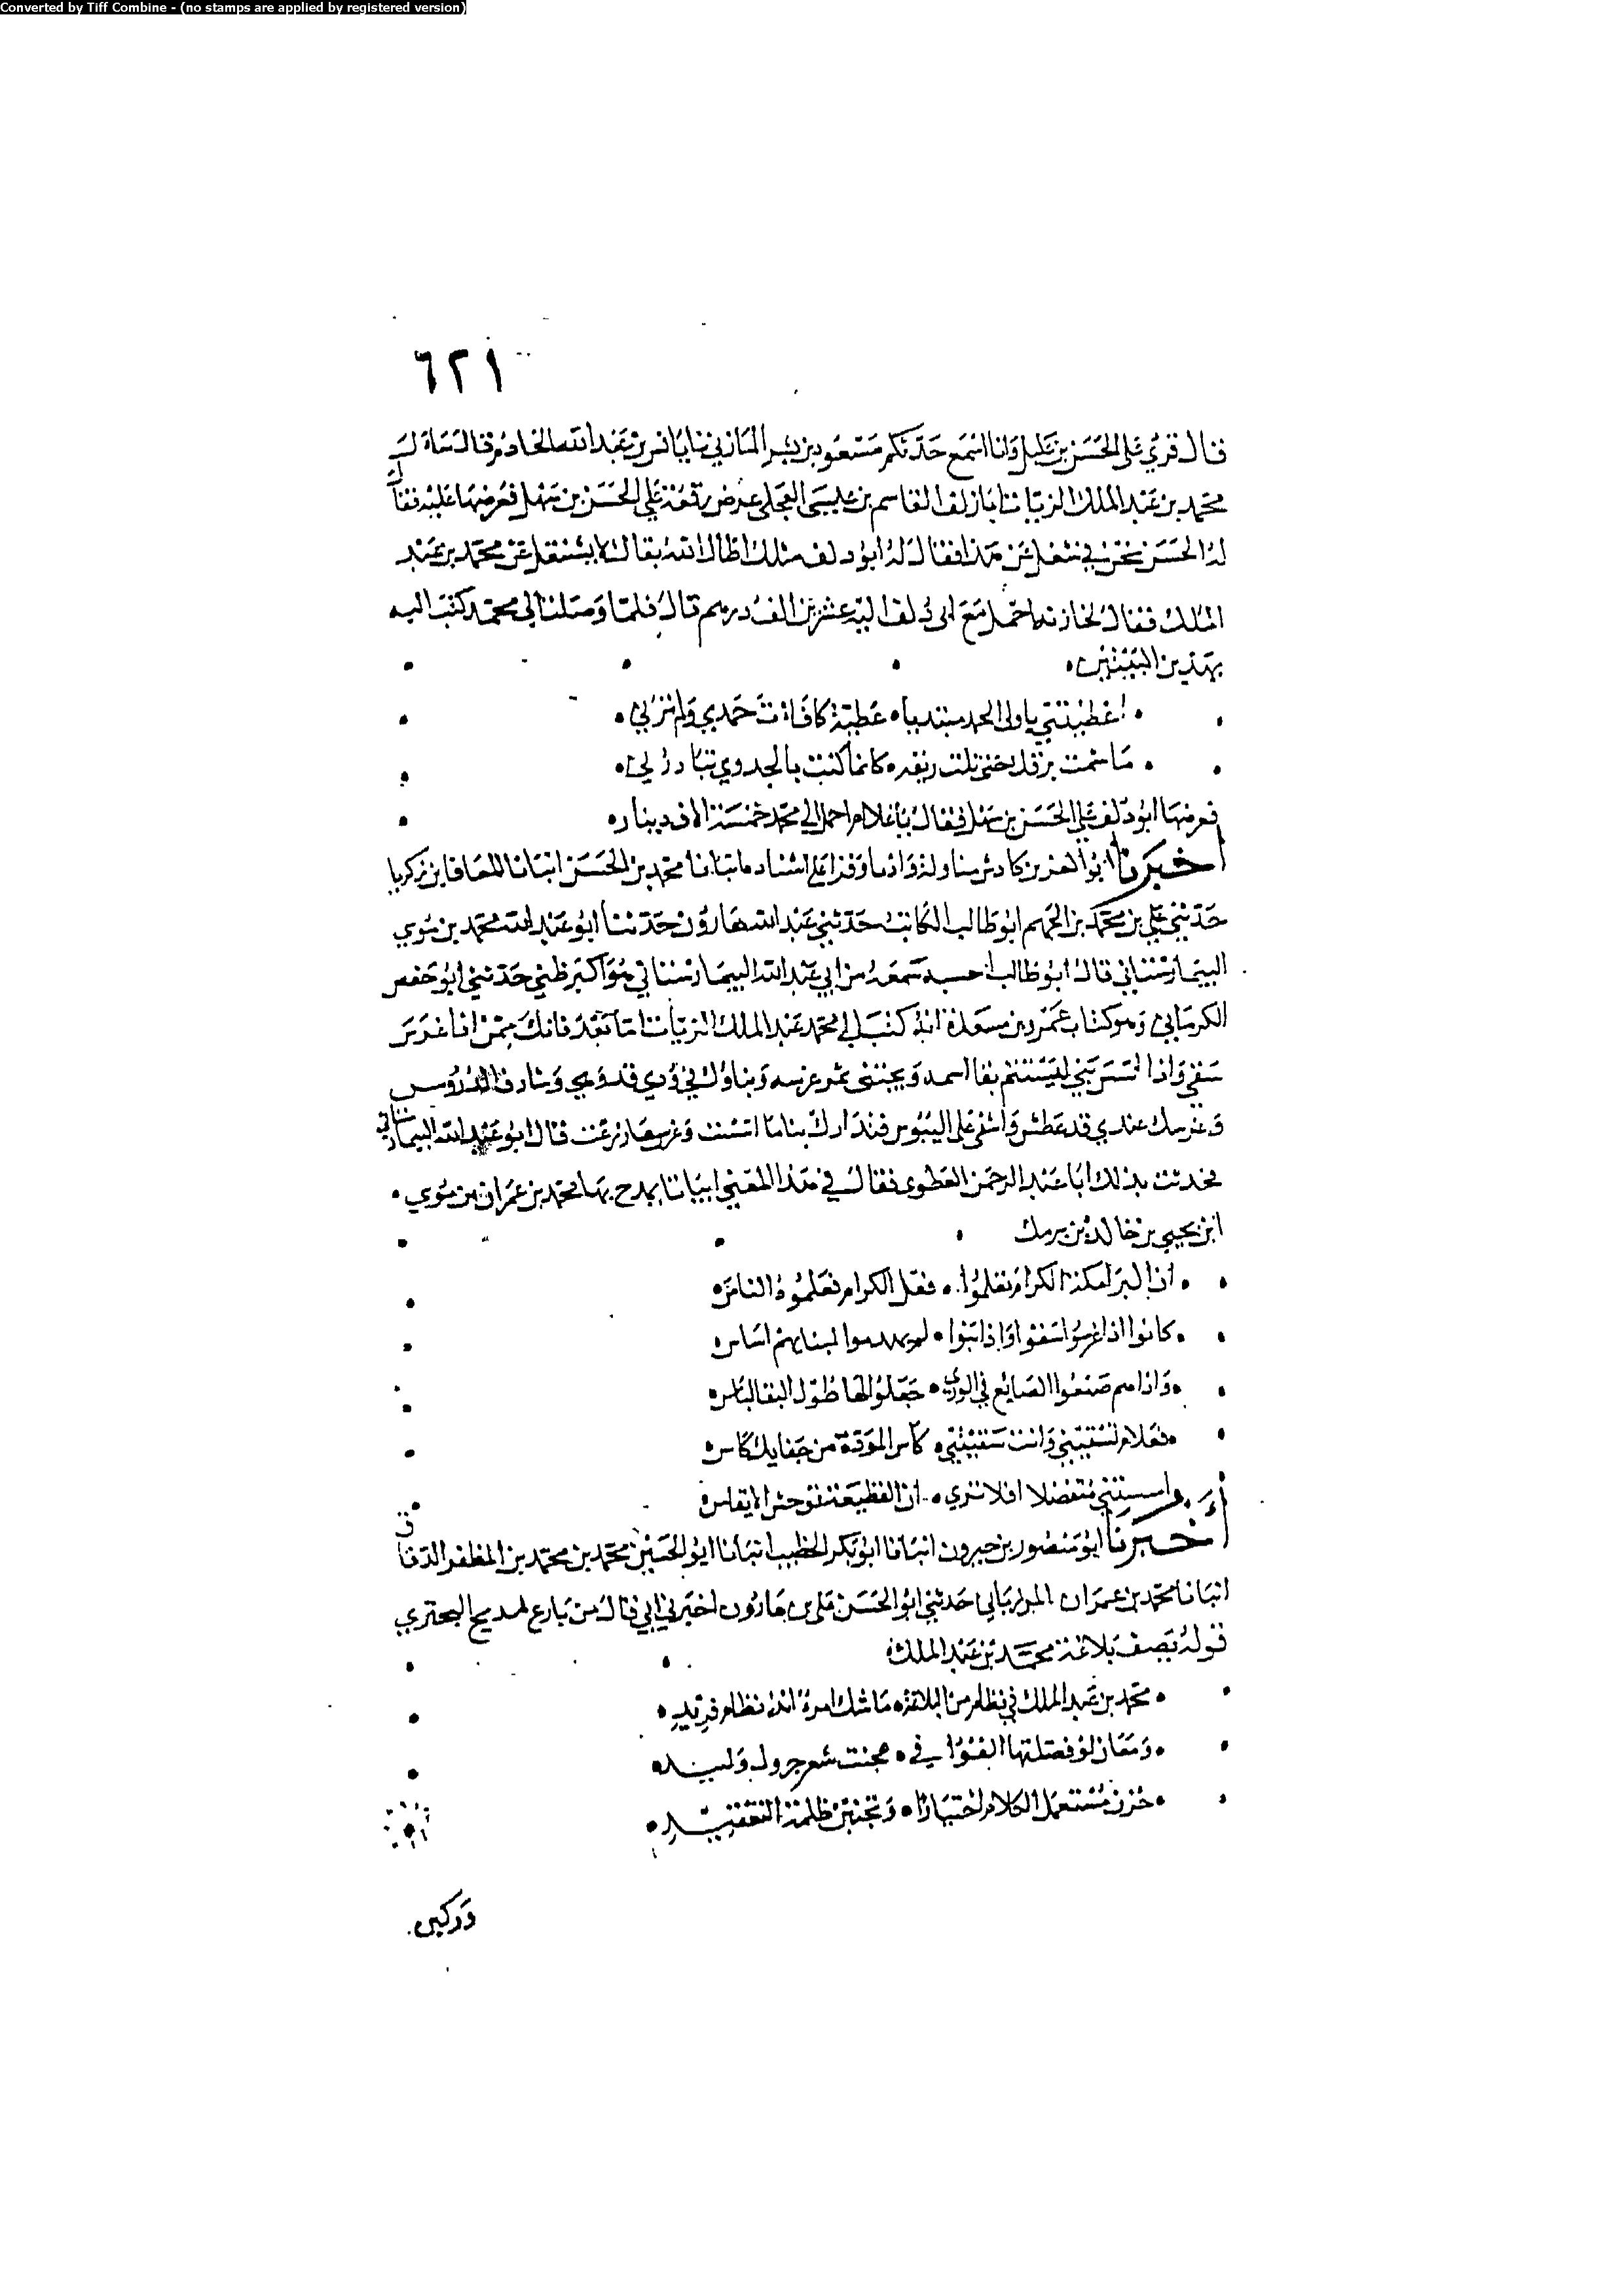 Converted by Tiff Combine - (no stamps are applied by registered version)
٦٢١
قال قرئ على الحسن بن عليل وانا اسمع حدثكم مسعود بن بشر المازني نا يانس بن عبد الله الخادم قال سال
محمد بن عبد الملك الزيات ابا دلف القاسم بن عيسى العجلي عرض رقعة على الحسن بن سهل فعرضها عليه فقال
له الحسن نحن في شغل عن هذا فقال له ابو دلف مثلك اطال الله بقاك لا يشتغل عن محمد بن عبد
الملك فقال لخازنه احمل مع ابي دلف اليه عشرين الف درهم قال فلما وصلنا الى محمد كتب اليه
بهذين البيتين
اعطيتني يا ولي الحمد مبتديا عطية كافات حمدي ولم ترني
ما شمت برقك حتى نلت ريقه كانما كنت بالجدوى تبادرني
فعرضها ابو دلف على الحسن بن سهل فقال يا غلام احمل الى محمد خمسة الاف دينار
اخبرنا ابو العز بن كادش مناولة واذنا وقرا على اسناده انبانا محمد بن الحسن انبانا المعافا بن زكريا
حدثني علي بن محمد بن الجهم ابو طالب الكاتب حدثني عبد الله هارون حدثنا ابو عبد الله محمد بن موسى
البيمارستاني قال ابو طالب احسبه سمعه من ابي عبد الله البيمارستاني هو اكبر ظني حدثني ابو حفص
الكرماني وهو كتاب عمرو بن مسعدة انه كتب الى محمد عبد الملك الزيات اما بعد فانك ممن اذا غرس
سقى واذا اسس بنى ليستتم بقا اسه ويجتني ثمر غرسه وبناوك في ودي قد وهي وشارف الدروس
وغرسك عندي قد عطش واشفى على اليبوس فتدارك بنا ما اسست وغرس ما زرعت قال ابو عبد الله البيمارستاني
فحدثت بذلك ابا عبد الرحمن العطوي فقال في هذا المعنى ابياتا يمدح بها محمد بن عمران بن موسى
ابن يحيى بن خالد بن برمك
ان البرامكة الكرام تعلموا فعل الكرام فعلموه الناس
كانوا اذا غرسوا سقوا واذا بنوا لم يهدموا لبنايهم اساس
واذا هم صنعوا الصنايع في الورى جعلوا لها طول البقا لباس
فعلام تسقيني وانت سقيتني كاس المودة من جفايك كاس
انستني متفضلا افلا ترى ان القطيعة توحش الايناس
اخبرنا ابو منصور بن خيرون انبانا ابو بكر الخطيب انبانا ابو الحسين محمد بن محمد بن المظفر الدقاق
انبانا محمد بن عمران المرزباني حدثني ابو الحسن علي بن هارون اخبرني ابي قال من بارع مديح البحتري
قوله يصف بلاغة محمد بن عبد الملك
محمد بن عبد الملك في نظام من البلاغة ما شك امرؤ انه نظام فريد
ومعان لو فصلتها القوافي هجنت شعر جرول ولبيد
حزن مستعمل الكلام اختيارا وتجنبن ظلمة التعقيد
وركبن